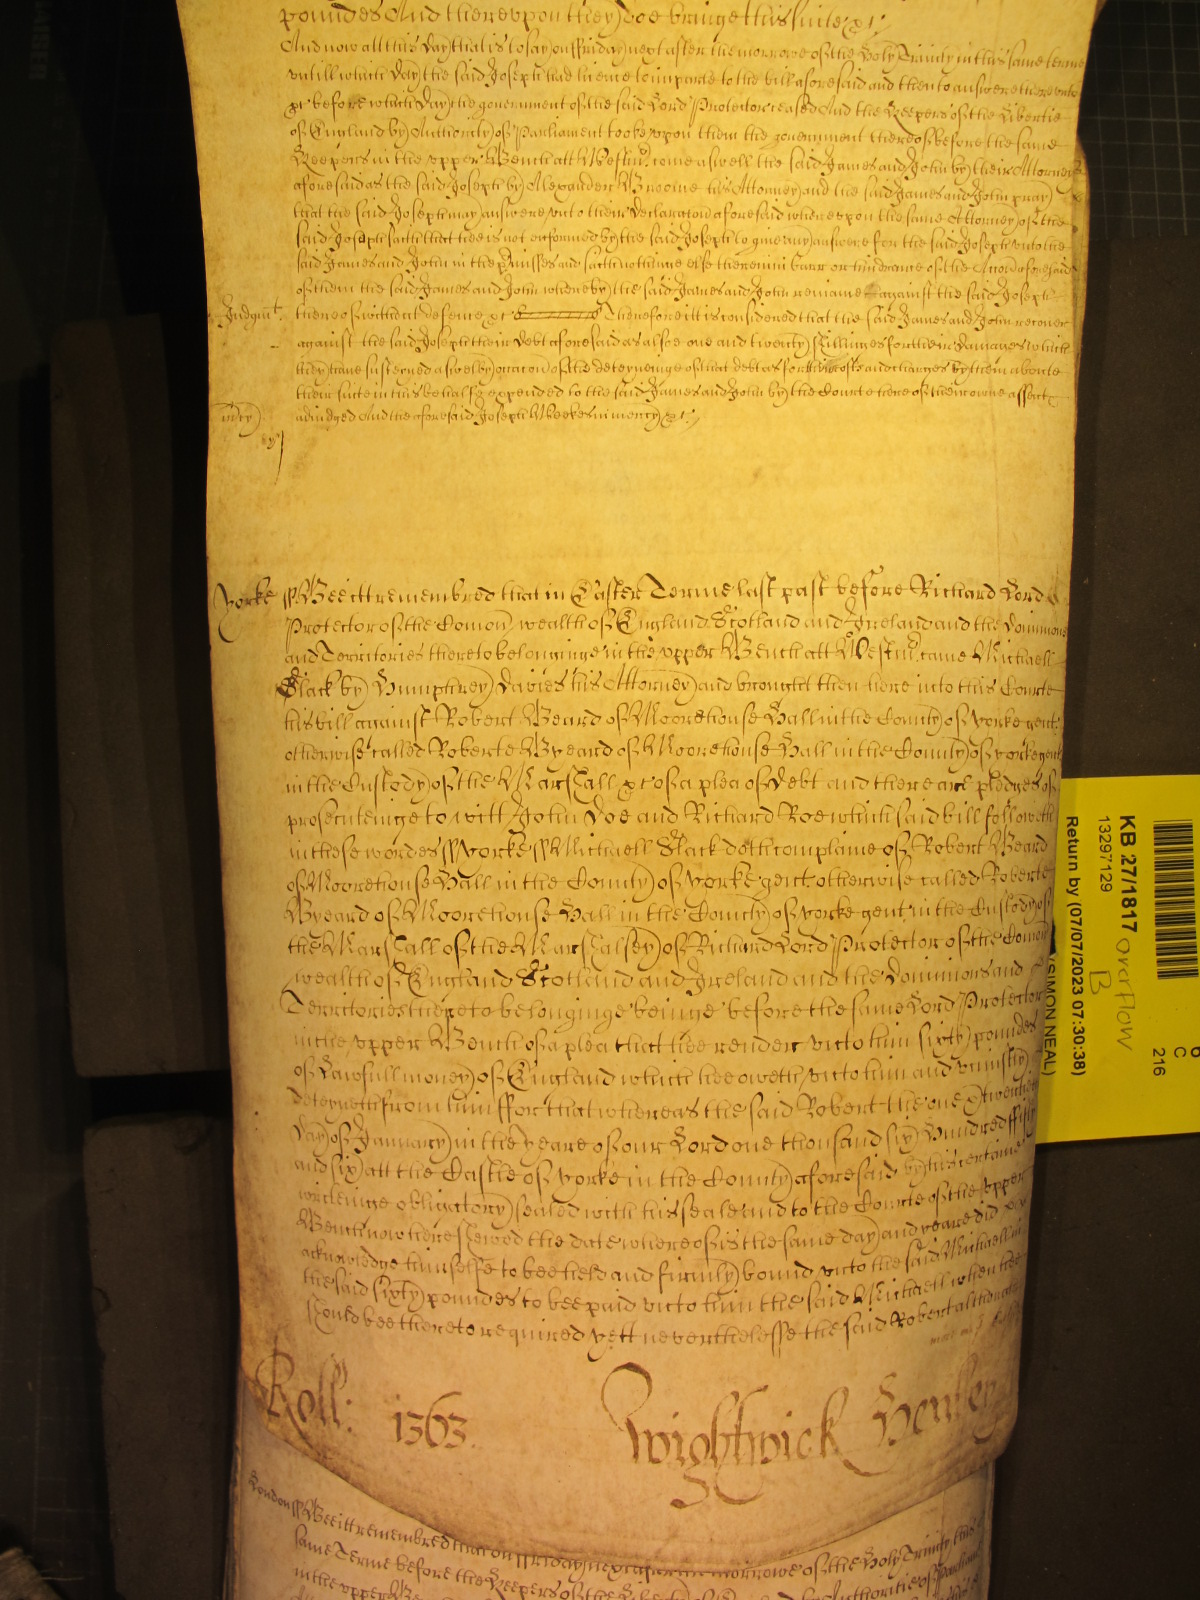 poundes And thereupon they doe bringe this suite &c:
And now att this day that is to say on ffriday next after the morrowe of the Holy Trinity in this same terme
untill which day the said Joseph had licence to imparle to the bill aforesaid and then to answere thereunto
&c before which day the government of the said Lord Protector ceased And the Keepers of the Libertie
of England by Authority of Parliament tooke upon them the government thereof before the same
Keepers in the upper Bench att Westmr. come aswell the said James and John by their Attorney
aforesaid as the said Joseph by Alexander Broome his Attorney and the said James and John pray
that the said Joseph may answere unto their Declaracon aforesaid whereupon the same Attorney of the
said Joseph saith that hee is not enformed by the said Joseph to give any answere for the said Joseph unto the
said James and John in the premisses and saith nothinge else therein in barr or hindrance of the Accon aforesaid
of them the said James and John whereby the said James and John remaine against the said Joseph
Judgmt. thereof without defence &c Therefore itt is considered that the said James and John recover
against the said Joseph their Debt aforesaid as alsoe one and twenty shillinges for their damages which
they have susteyned aswell by occacon of the deteyneinge of that debt as for their costs and charges by them aboute
their suite in this behalfe expended to the said James and John by the Courte here of their owne assent
mcy. adiudged And the aforesaid Joseph Weekes in mercy &c:
Yorke ss Bee itt remembred that in Easter Terme last past before Richard Lord
Protector of the Comon wealth of England Scotland and Ireland and the Dominions
and Territories thereto belonginge in the upper Bench att Westmr. came Michaell
Slack by Humphrey Davies his Attorney and brought then here into this Courte
his bill against Robert Beard of Moorehouse Hall in the County of yorke gent.
otherwise called Roberte Byeard of Moorehouse Hall in the County of yorke gent
in the Custody of the Marshall &c of a plea of Debt and there are pledges of
prosecuteinge to witt John Doe and Richard Roe which said bill followeth
in these wordes ss Yorke ss Michaell Slack doth complaine of Robert Beard
of Moorehouse Hall in the County of yorke gent. otherwise called Roberte
Byeard of Moorehouse Hall in the County of yorke gent. in the Custody of
the Marshall of the Marshalsey of Richard Lord Protector of the Comon
wealth of England Scotland and Ireland and the Dominions and
Territories thereto belonginge beinge before the same Lord Protector
in the upper Bench of a plea that hee render unto him sixty poundes
of Lawfull money of England which hee oweth unto him and uniustly
deteyneth from him ffor that whereas the said Robert the one & twentieth
day of January in the yeare of our Lord one thousand six hundred ffifty
and six att the Castle of yorke in the County aforesaid by his certaine
writeinge obligatory sealed with his seale and to the Courte of the upper
Bench now here shewed the date whereof is the same day and yeare did
acknowledge himselfe to bee held and firmly bound unto the said Michaell in
the said sixty poundes to bee paid unto him the said Michaell when hee
should bee thereto required yett neverthelesse the said Robert although
Roll: 1363. Wightwick Henley
London ss Bee itt remembred that on ffriday next after the morrowe of the Holy Trinity this
same Terme before the Keepers of the Libertie of England by Authoritie of Parliament
in the upper Bench
KB 27/1817 overflow
B
132971129
Return by (07/07/2023 07:30:38)
(SIMON NEAL)
C
216